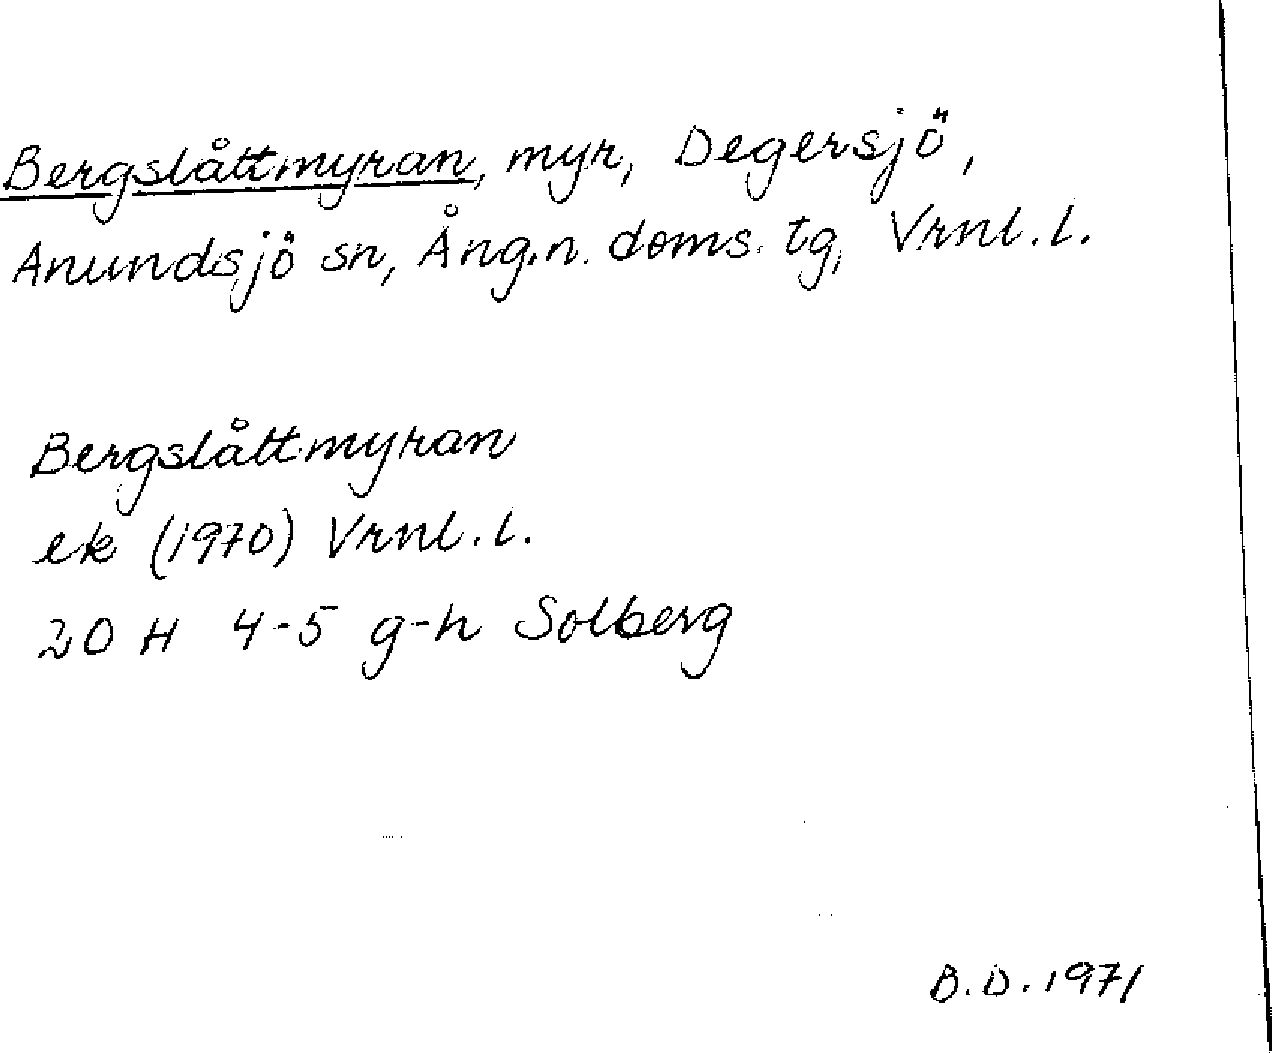 Bergslåttmyran, myr, Degersjö,
Anundsjö sn, Ång.n. doms. tg, Vrnl. l.
Bergslåttmyran
ek (1970) Vrnl. l.
20 H 4-5 g-h Solberg
B.D. 1971